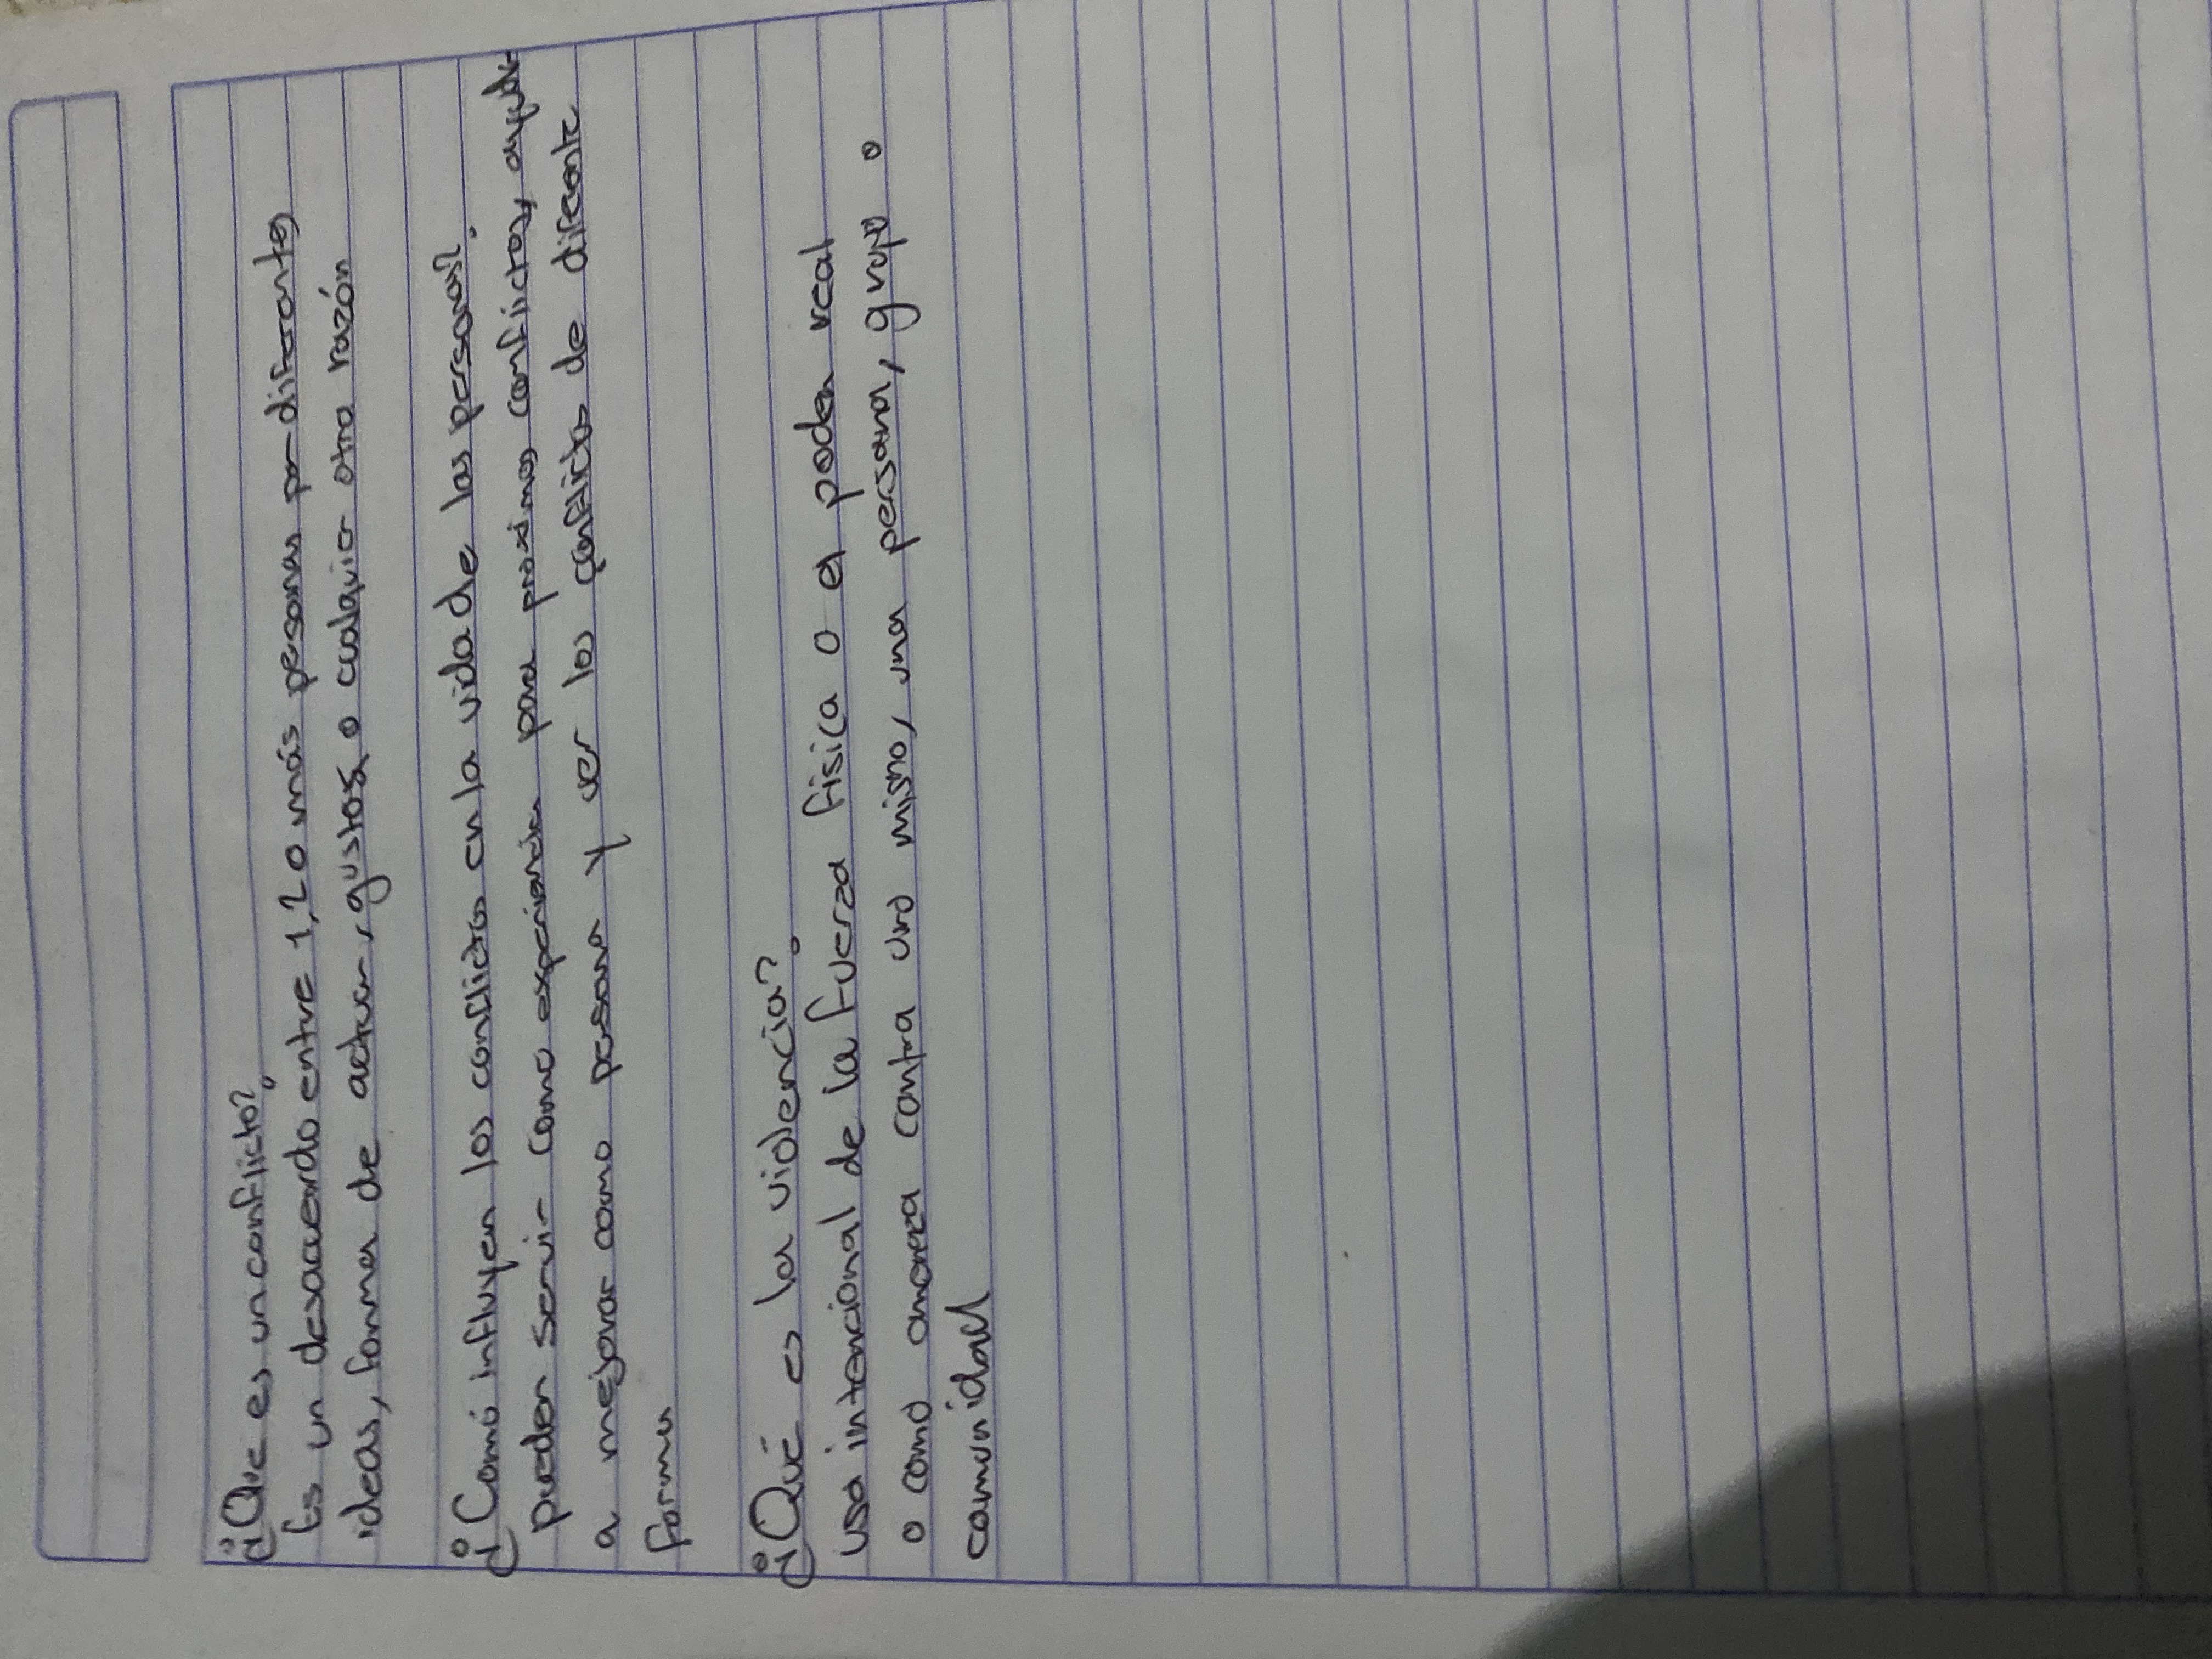 ¿Que es un conflicto?
Es un desacuerdo entre 1,2 o más personas por diferentes
ideas, forma de actuar, gustos, o cualquier otra razón
¿Comó influyen los conflictos en la vida de las personas?
pueden servir como experiencia para proximos conflictos, ayuda
a mejorar como persona y ver los conflictos de diferente
forma
¿Qué es la violencia?
uso intencional de la fuerza fisica o el poder real
o como amenaza contra uno mismo, una persona, grupo o
comunidad